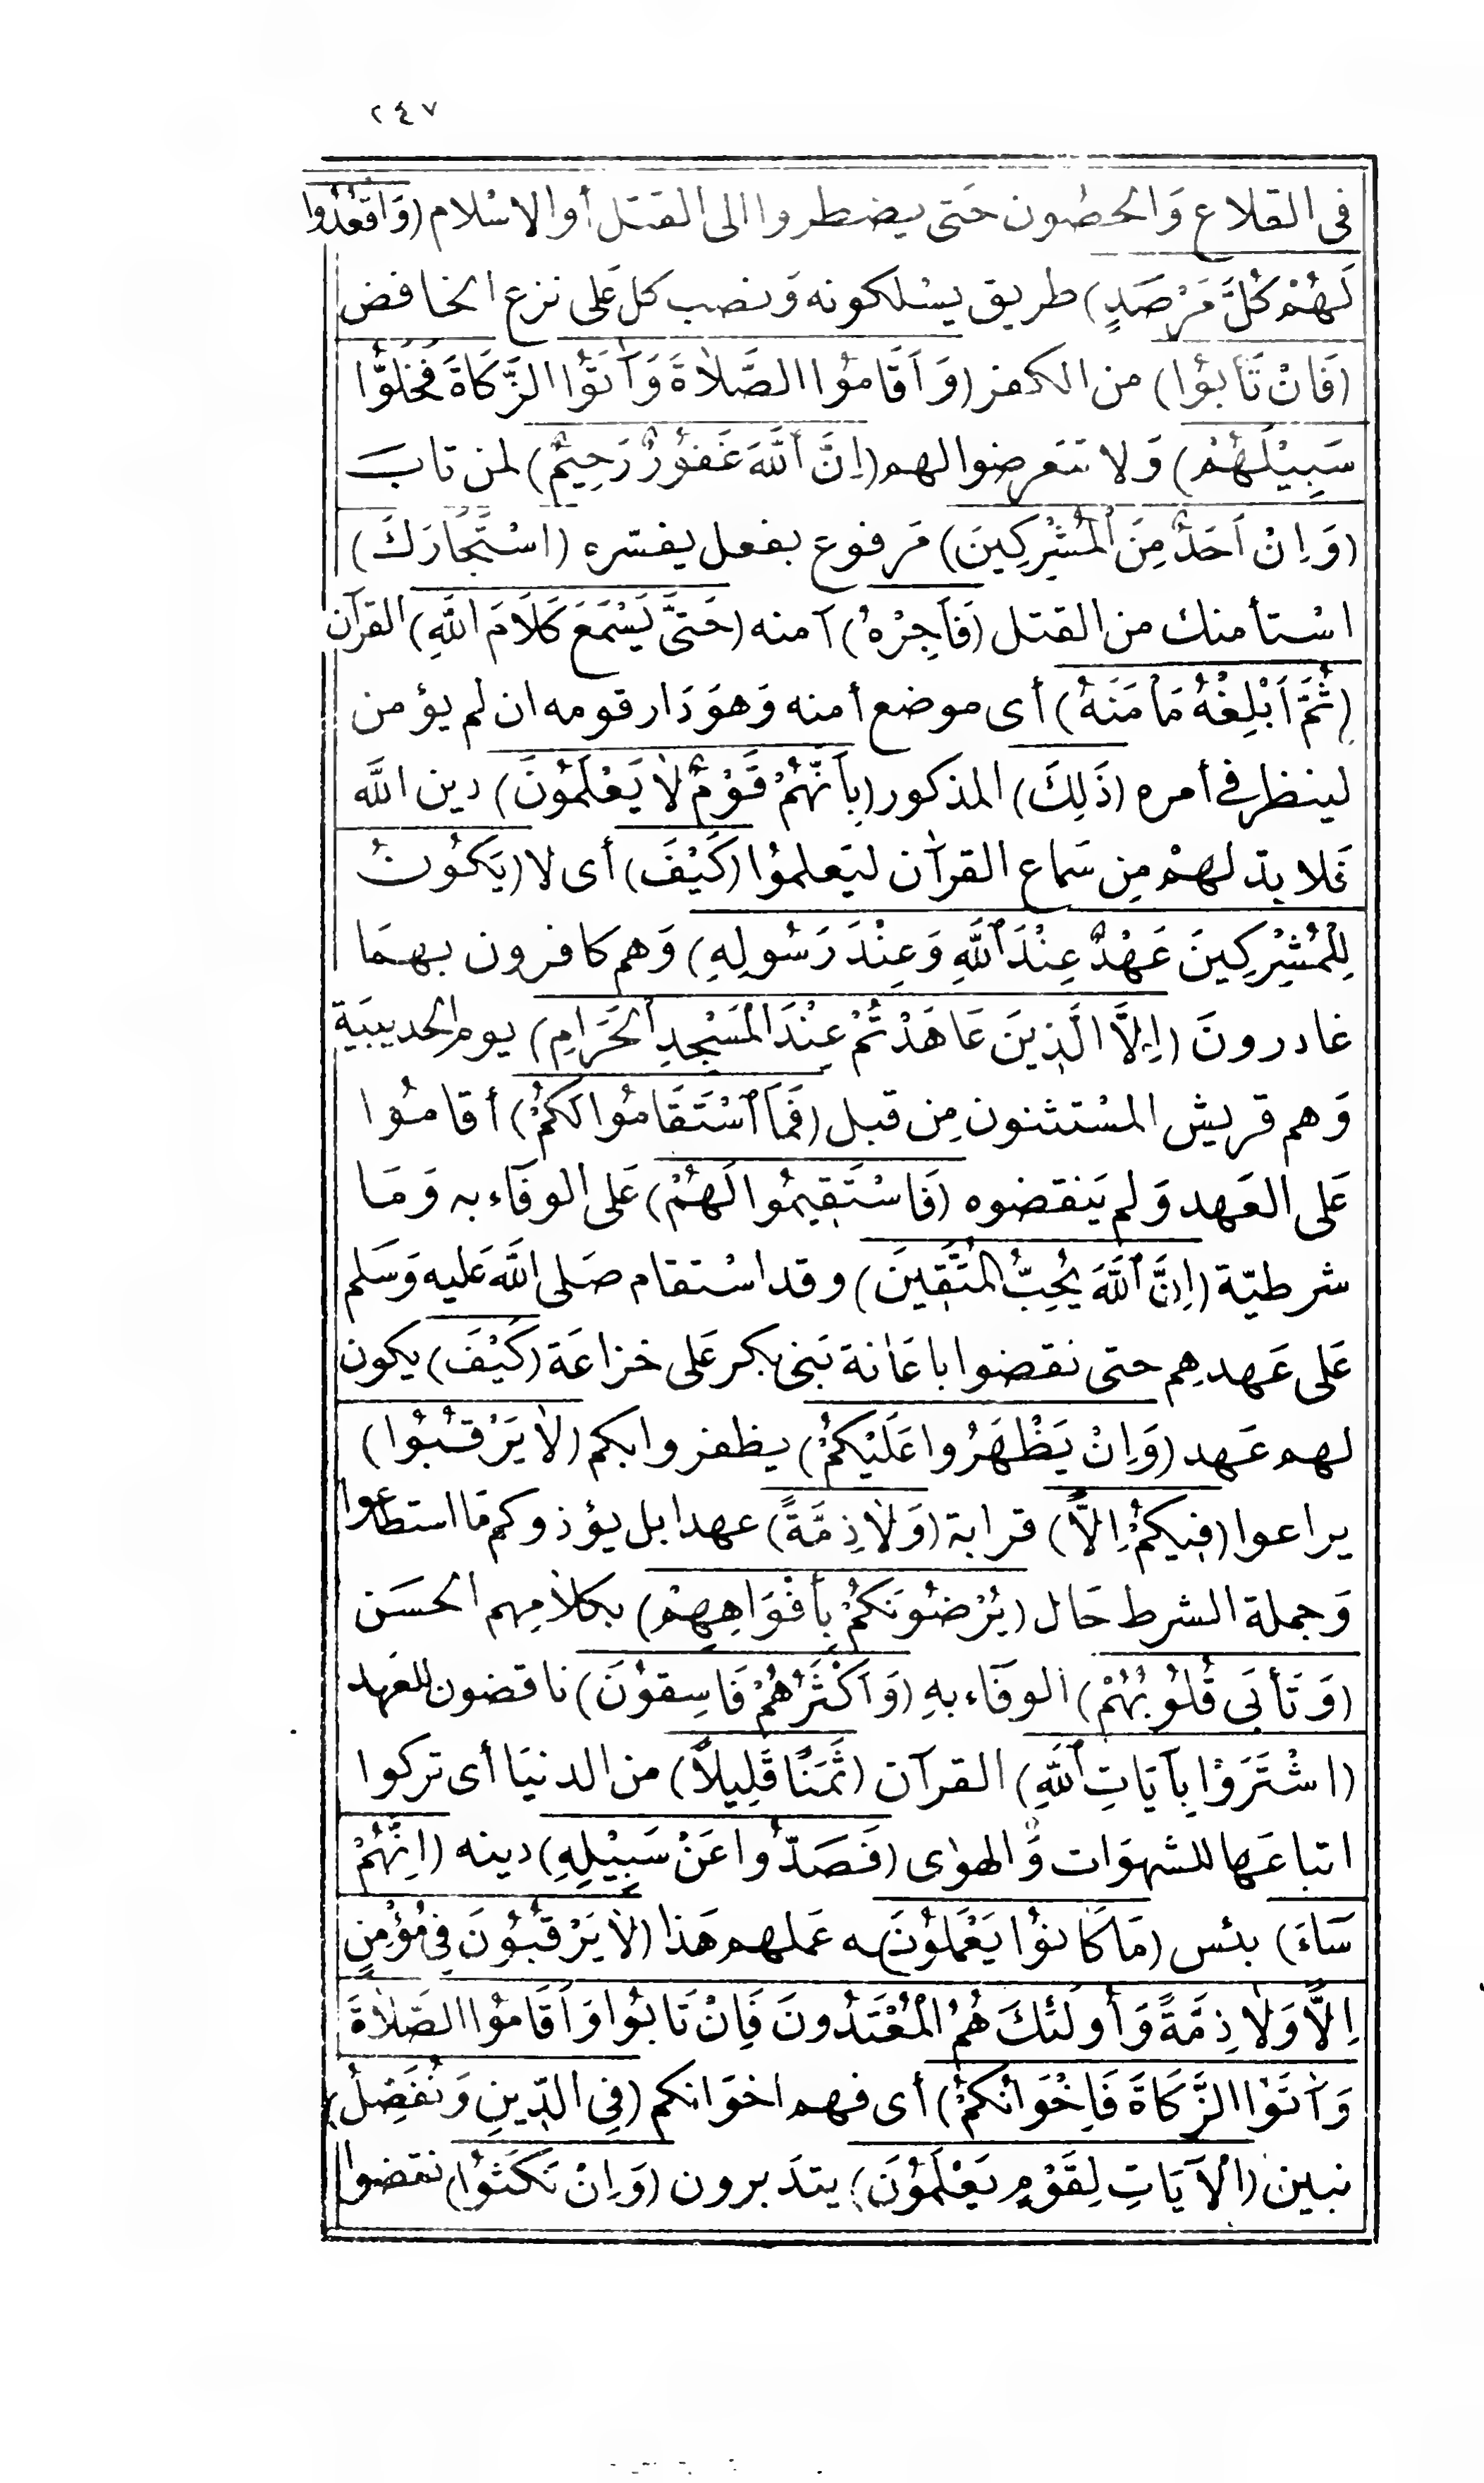 ٢٤٧
فى القلاع وَالحصُون حَتى يضطروا الى القتل أو الاسْلام (وَاقْعُدُوا
لَهُمْ كُلَّ مَرْصَدٍ) طريق يسْلكونه وَنصب كل عَلى نزع الخافض
(فَاِنْ تَابُوا) من الكفر (وَاَقَامُوا الصَّلَاةَ وَآتَوُا الزَّكَاةَ فَخَلُّوا
سَبِيْلَهُمْ) وَلا تتعرضوا لهم (اِنَّ اللَّهَ غَفُوْرٌ رَحِيْمٌ) لمن تابَ
(وَاِنْ اَحَدٌ مِنَ الْمُشْرِكِينَ) مَرفوع بفعل يفسّره (اسْتَجَارَكَ)
اسْتأمنك من القتل (فَاَجِرْهُ) آمنه (حَتَّى يَسْمَعَ كَلَامَ اللَّهِ) القرآن
(ثُمَّ اَبْلِغْهُ مَاْمَنَهُ) أى موضع أمنه وَهوَ دَار قومه ان لم يؤمن
لينظر في أمره (ذَلِكَ) المذكور (بِاَنَّهُمْ قَوْمٌ لَا يَعْلَمُونَ) دين اللَّه
فَلا بدّ لهمْ مِن سَماع القرآن ليَعلمُوا (كَيْفَ) أى لا (يَكُونُ
لِلْمُشْرِكِينَ عَهْدٌ عِنْدَ اللَّهِ وَعِنْدَ رَسُولِهِ) وَهم كافرون بهمَا
غادرونَ (اِلَّا الَّذِينَ عَاهَدْتُمْ عِنْدَ الْمَسْجِدِ الْحَرَامِ) يوم الحديبيَة
وَهم قريش المسْتثنون مِن قبل (فَمَا اسْتَقَامُوا لَكُمْ) أقامُوا
عَلى العَهد وَلم يَنقضوه (فَاسْتَقِيمُوا لَهُمْ) عَلى الوفَاء به وَمَا
شرطيّة (اِنَّ اللَّهَ يُحِبُّ الْمُتَّقِينَ) وقد اسْتقام صَلى اللَّه عَليه وَسَلم
عَلى عَهدهِم حتى نقضوا باعَانة بَنى بكر عَلى خزاعَة (كَيْفَ) يكون
لهم عَهد (وَاِنْ يَظْهَرُوا عَلَيْكُمْ) يظفروا بكم (لَا يَرْقُبُوا)
يراعوا (فِيكُمْ اِلًّا) قرابة (وَلَا ذِمَّةً) عهدا بل يؤذوكم مَا استطاعوا
وَجملة الشرط حَال (يُرْضُونَكُمْ بِأَفْوَاهِهِمْ) بكلامِهم الحسَن
(وَتَأبَى قُلُوبُهُمْ) الوفَاء بهِ (وَاَكْثَرُهُمْ فَاسِقُوْنَ) ناقضون للعَهد
(اشْتَرَوْا بِآيَاتِ اللَّهِ) القرآن (ثَمَنًا قَلِيلًا) من الدنيَا أى تركوا
اتباعَها للشهوَات وَالهوٰى (فَصَدُّوا عَنْ سَبِيْلِهِ) دينه (اِنَّهُمْ
سَآءَ) بئس (مَا كَانُوْا يَعْمَلُوْنَ)ـه عَملهم هَذا (لَا يَرْقُبُوْنَ فِي مُؤْمِنٍ
اِلًّا وَلَا ذِمَّةً وَأُولَئِكَ هُمُ الْمُعْتَدُونَ فَاِنْ تَابُوا وَاَقَامُوْا الصَّلَاةَ
وَآتَوْا الزَّكَاةَ فَاِخْوَانُكُمْ) أى فهم اخوَانكم (فِي الدِّينِ وَنُفَصِّلُ)
نبين (الْآيَاتِ لِقَوْمٍ يَعْلَمُوْنَ) يتدَبرون (وَاِنْ نَكَثُوْا) نقضوا